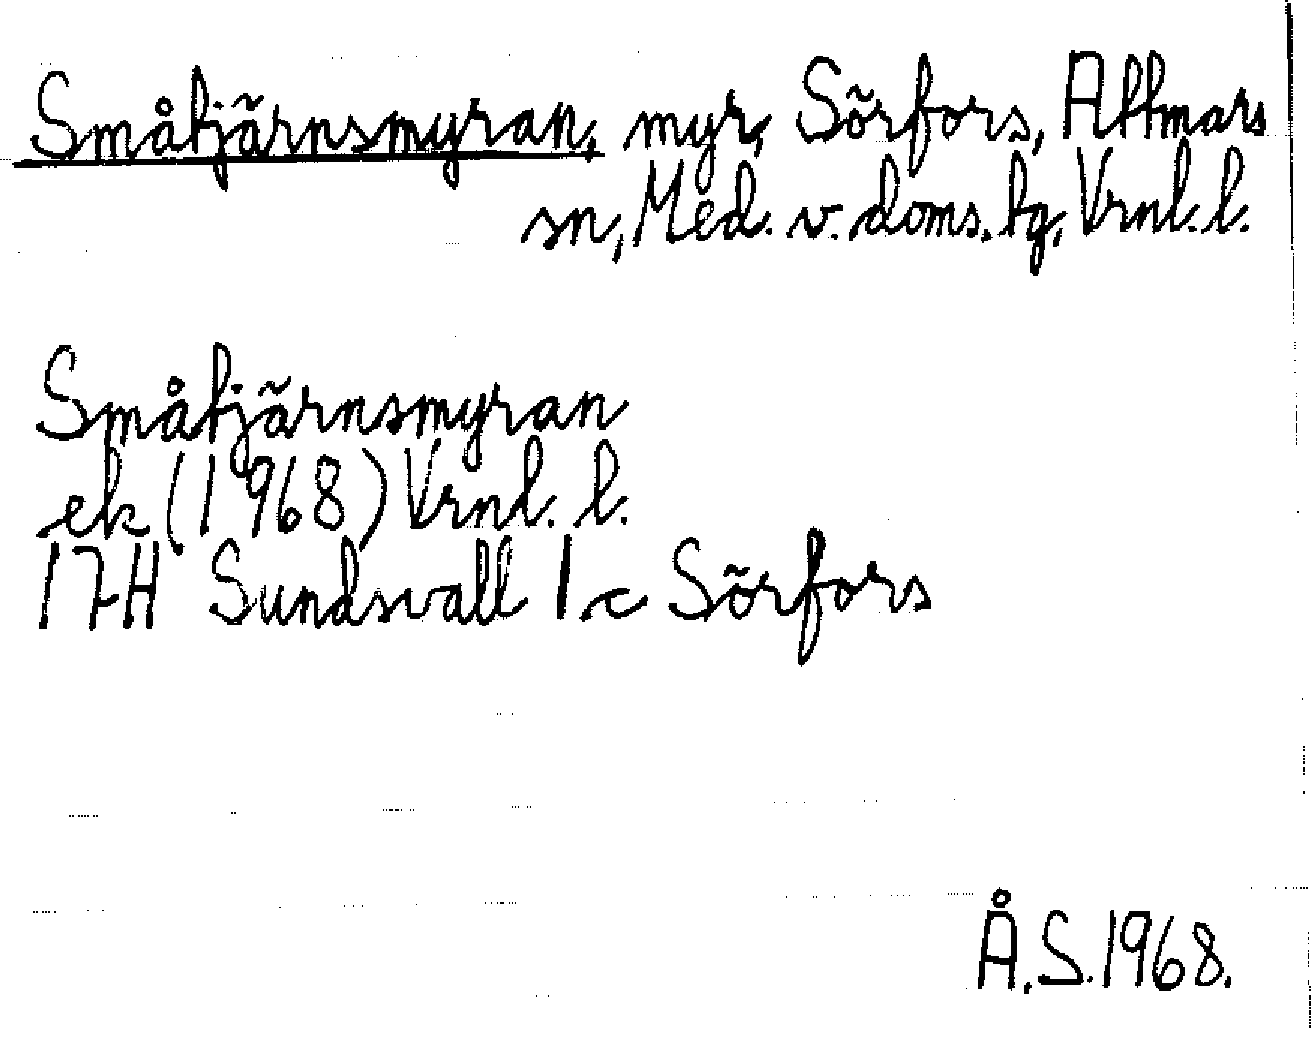 Småtjärnsmyran, myr, Sörfors, Attmars
sn, Med. v. doms. tg, Vrnl. l.
Småtjärnsmyran
ek (1968) Vrnl. l.
17H Sundsvall 1c Sörfors
Å.S. 1968.